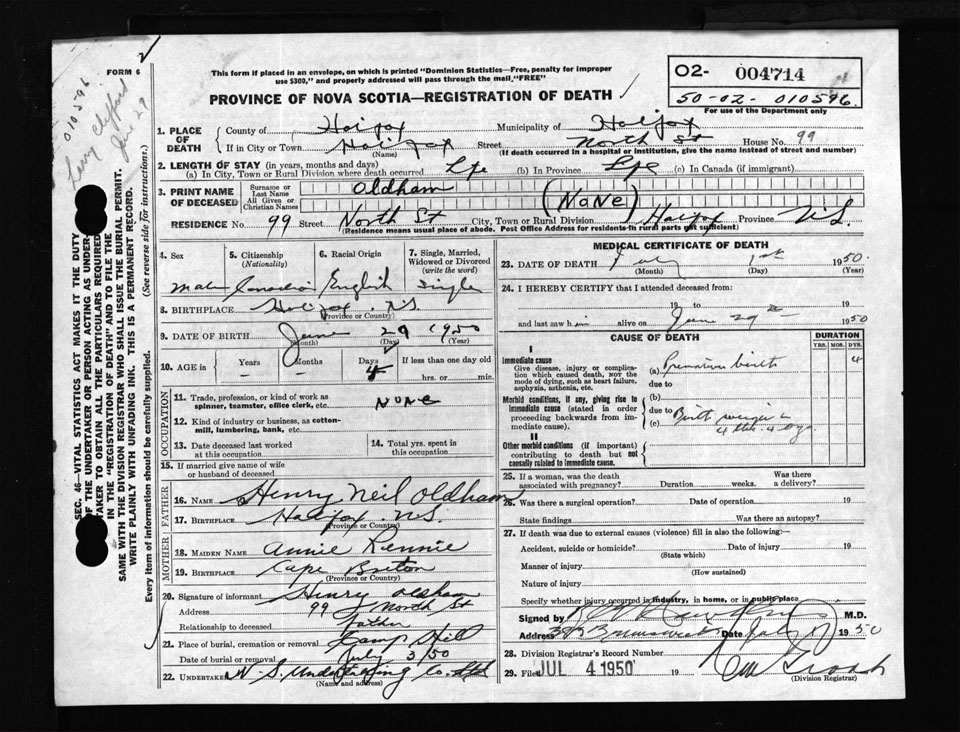 FORM 6
2
010596
This form if placed in an envelope, on which is printed "Dominion Statistics—Free, penalty for improper
use $300," and properly addressed will pass through the mail, "FREE"
PROVINCE OF NOVA SCOTIA—REGISTRATION OF DEATH
02- 004714
50-02-010596
For use of the Department only
1. PLACE OF DEATH
County of Halifax Municipality of Halifax
If in City or Town Halifax Street North St House No. 99
(Name) (If death occurred in a hospital or institution, give the name instead of street and number)
2. LENGTH OF STAY (in years, months and days)
(a) In City, Town or Rural Division where death occurred Life (b) In Province Life (c) In Canada (if immigrant)
3. PRINT NAME OF DECEASED
Surname or Last Name Oldham
All Given or Christian Names (None)
RESIDENCE No. 99 Street North St City, Town or Rural Division Halifax Province N.S.
(Residence means usual place of abode. Post Office Address for residents in rural parts not sufficient)
4. Sex Male
5. Citizenship (Nationality) Canadian
6. Racial Origin English
7. Single, Married, Widowed or Divorced (write the word) Single
8. BIRTHPLACE Halifax N.S.
(Province or Country)
9. DATE OF BIRTH June 29 1950
(Month) (Day) (Year)
10. AGE in Years — Months — Days 4 If less than one day old
hrs. or min.
OCCUPATION
11. Trade, profession, or kind of work as
spinner, teamster, office clerk, etc. NONE
12. Kind of industry or business, as cotton-
mill, lumbering, bank, etc.
13. Date deceased last worked
at this occupation
14. Total yrs. spent in
this occupation
15. If married give name of wife
or husband of deceased
FATHER
16. NAME Henry Neil Oldham
17. BIRTHPLACE Halifax N.S.
(Province or Country)
MOTHER
18. MAIDEN NAME Annie Rennie
19. BIRTHPLACE Cape Breton
(Province or Country)
20. Signature of informant Henry Oldham
Address 99 North St
Relationship to deceased Father
21. Place of burial, cremation or removal Camp Hill
Date of burial or removal July 3/50
22. UNDERTAKER N. S. Undertaking Co. Ltd
(Name and address)
MEDICAL CERTIFICATE OF DEATH
23. DATE OF DEATH July 1st 1950
(Month) (Day) (Year)
24. I HEREBY CERTIFY that I attended deceased from:
19 to 19
and last saw him alive on June 29 1950
CAUSE OF DEATH
DURATION
YRS. MOS. DYS.
I
Immediate cause
Give disease, injury or compli-
cation which caused death, NOT the
mode of dying, such as heart failure,
asphyxia, asthenia, etc.
(a) Premature birth 4
due to
Morbid conditions, if any, giving rise to
immediate cause (stated in order
proceeding backwards from im-
mediate cause).
(b)
due to
(c) Birth weight
4 lbs. 4 ozs.
II
Other morbid conditions (if important)
contributing to death but not
causally related to immediate cause.
25. If a woman, was the death
associated with pregnancy? Duration weeks. Was there
a delivery?
26. Was there a surgical operation? Date of operation 19
State findings Was there an autopsy?
27. If death was due to external causes (violence) fill in also the following:—
Accident, suicide or homicide? Date of injury 19
(State which)
Manner of injury
(How sustained)
Nature of injury
Specify whether injury occurred in industry, in home, or in public place
Signed by M.D.
Address Brunswick Date July 1950
28. Division Registrar's Record Number
29. Filed JUL 4 1950 19
(Division Registrar)
SEC. 46—VITAL STATISTICS ACT MAKES IT THE DUTY
OF THE UNDERTAKER OR PERSON ACTING AS UNDER-
TAKER TO OBTAIN ALL THE PARTICULARS REQUIRED
IN THE "REGISTRATION OF DEATH" AND TO FILE THE
SAME WITH THE DIVISION REGISTRAR WHO SHALL ISSUE THE BURIAL PERMIT.
WRITE PLAINLY WITH UNFADING INK. THIS IS A PERMANENT RECORD.
Every item of information should be carefully supplied. (See reverse side for instructions.)